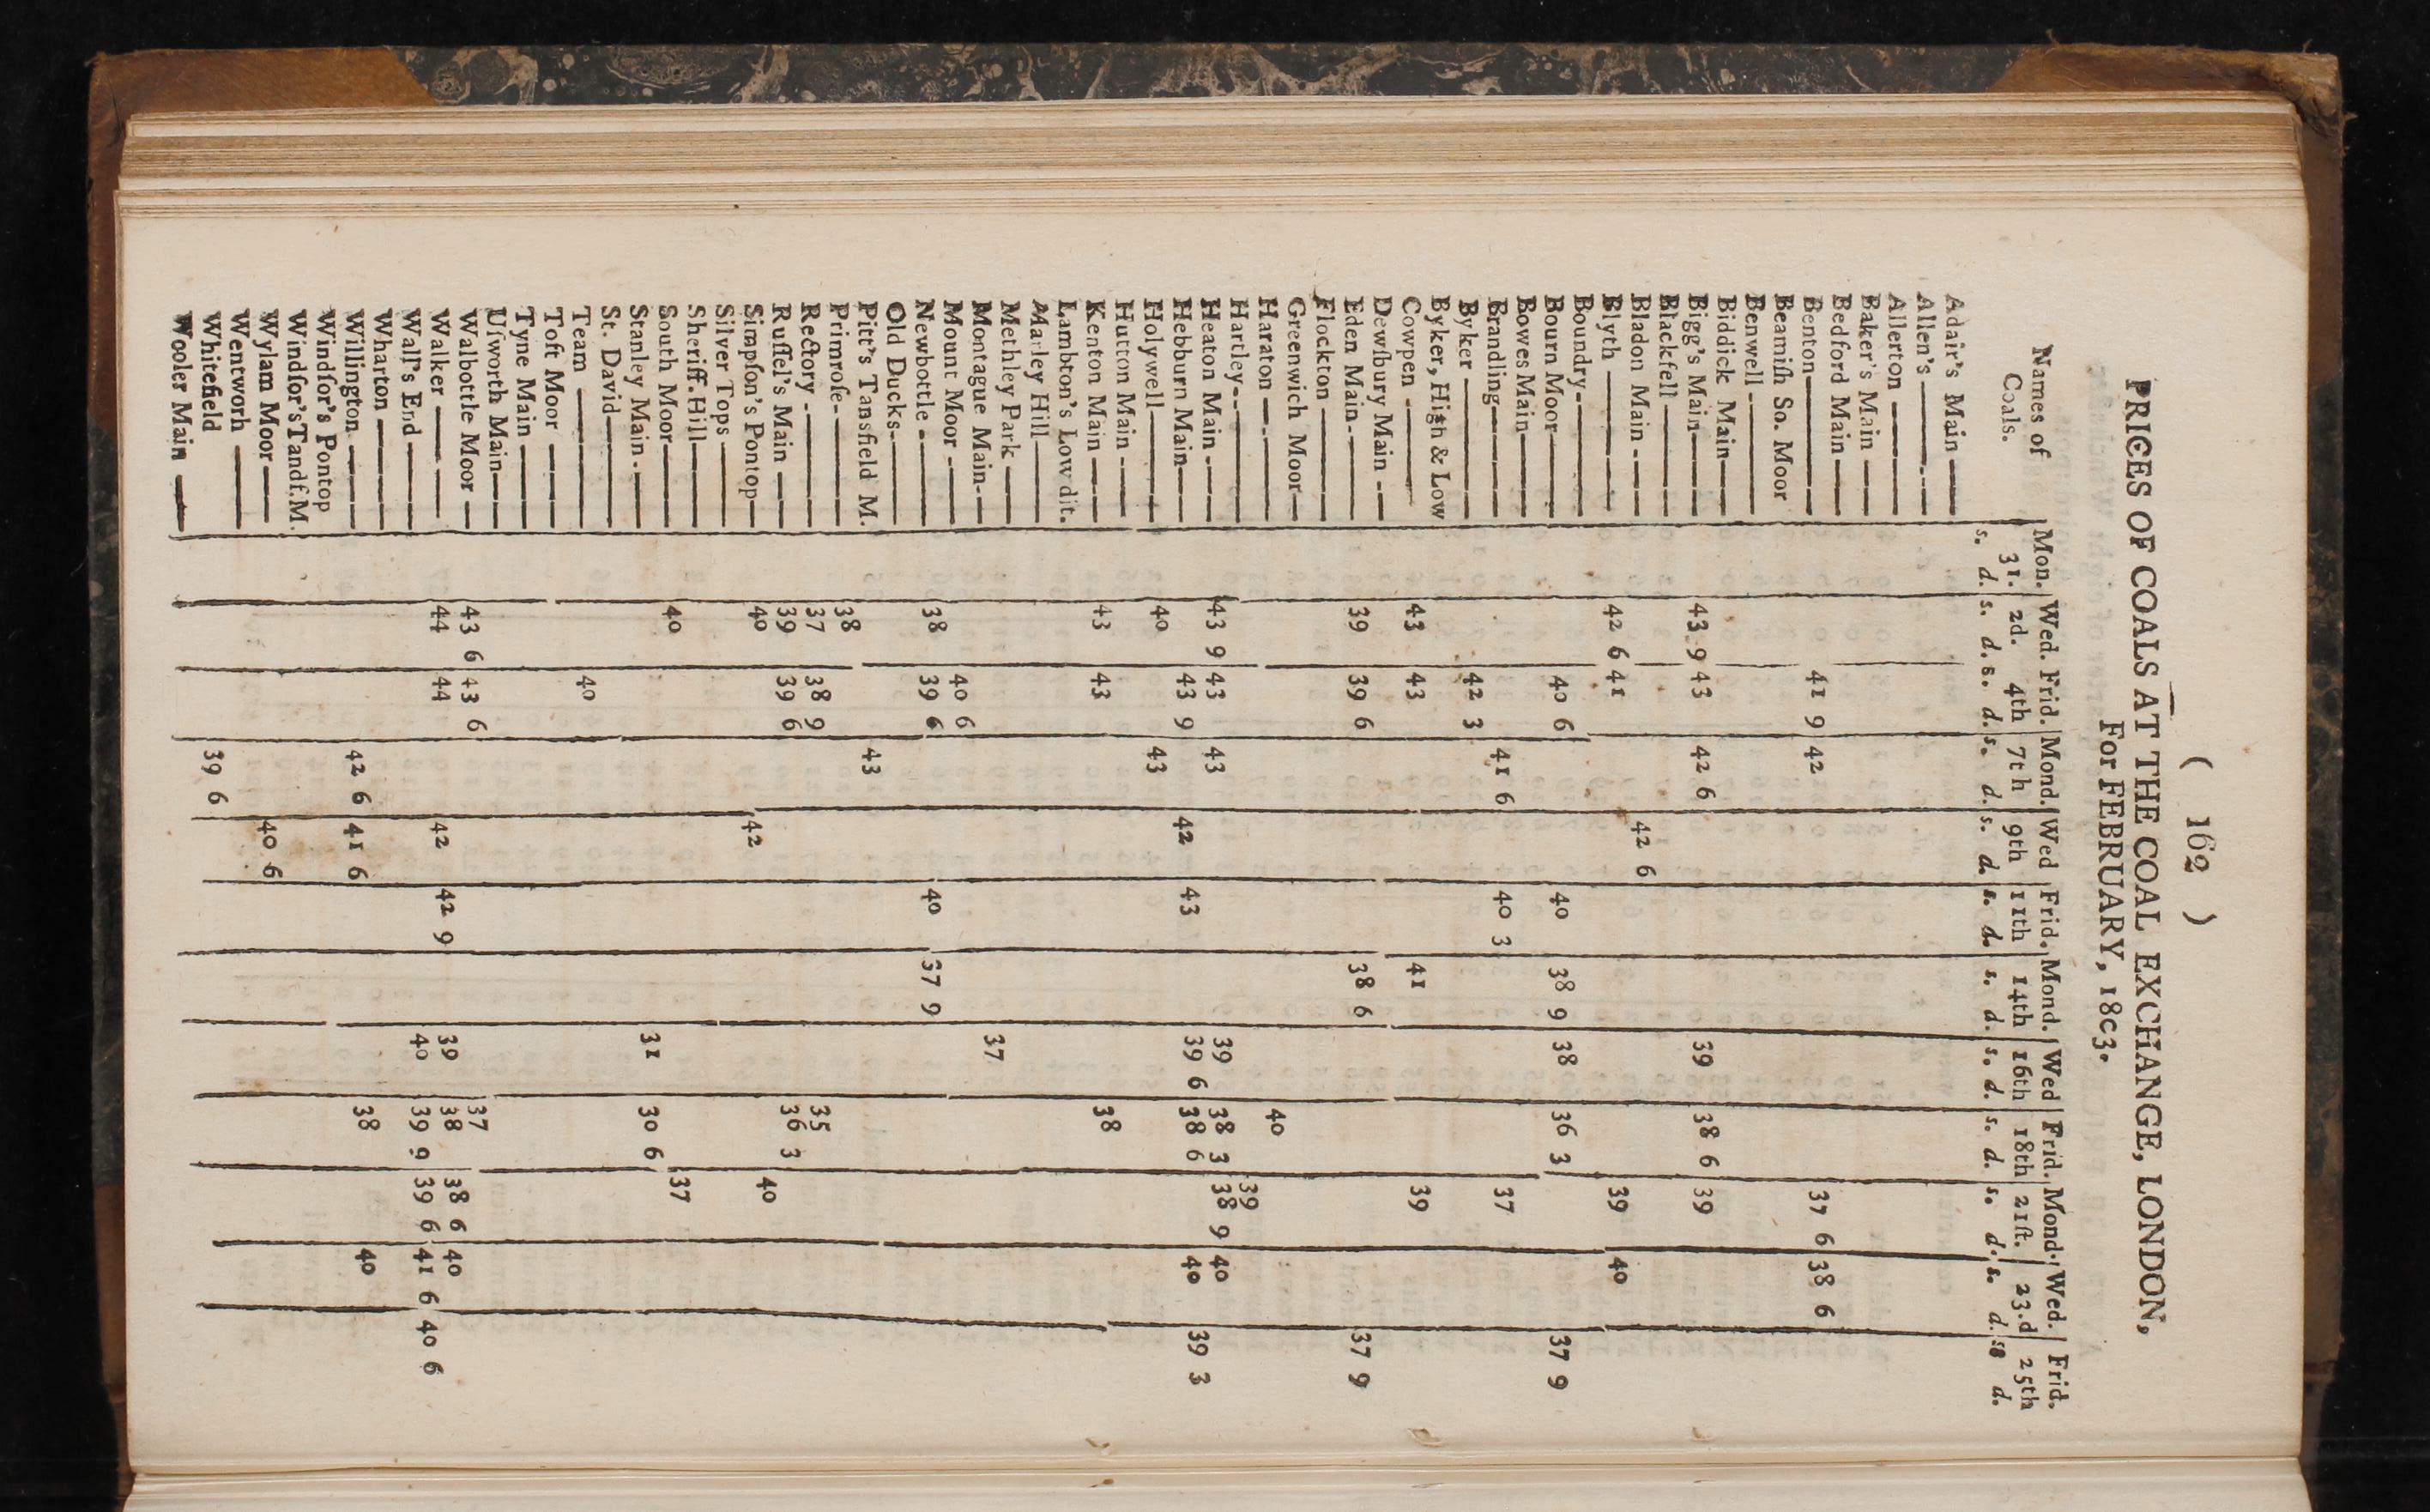 ( 162 )
PRICES OF COALS AT THE COAL EXCHANGE, LONDON,
For FEBRUARY, 18c3.
Names of Coals. Mon. 31. Wed. 2d. Frid. 4th Mond. 7th Wed 9th Frid. 11th Mond. 14th Wed 16th Frid. 18th Mond. 21ſt. Wed. 23.d Frid. 25th
s. d. s. d. s. d. s. d. s. d. s. d. s. d. s. d. s. d. s. d. s. d. s d.
Adair's Main
Allen's
Allerton
Baker's Main
Bedford Main
Benton 41 9 42 37 6 38 6
Beamiſh So. Moor
Benwell
Biddick Main
Bigg's Main 43 9 43 42 6 39 38 6 39
Blackfell
Bladon Main 42 6
Blyth 42 6 41 39 40
Boundry
Bourn Moor 40 6 40 38 9 38 36 3 37 9
Bowes Main
Brandling 41 6 40 3 37
Byker 42 3
Byker, High & Low
Cowpen 43 43 41 39
Dewſbury Main
Eden Main 39 39 6 38 6 37 9
Flockton
Greenwich Moor
Haraton 40
Hartley 39
Heaton Main 43 9 43 43 39 38 3 38 9 40
Hebburn Main 43 9 42 43 39 6 38 6 40 39 3
Holywell 40 43
Hutton Main
Kenton Main 43 43 38
Lambton's Low dit.
Marley Hill
Methley Park
Montague Main 37
Mount Moor 40 6
Newbottle 38 39 6 40 37 9
Old Ducks
Pitt's Tansfield M. 43
Primroſe 38
Rectory 37 38 9 35
Ruſſel's Main 39 39 6 36 3
Simpſon's Pontop 40 42 40
Silver Tops
Sheriff-Hill
South Moor 40 37
Stanley Main 31 30 6
St. David
Team 40
Toft Moor
Tyne Main
Uſworth Main
Walbottle Moor 43 6 43 6 37
Walker 44 44 42 42 9 39 38 38 6 40
Wall's End 40 39 9 39 6 41 6 40 6
Wharton
Willington 42 6 41 6 38 40
Windſor's Pontop
Windſor's Tandſ.M.
Wylam Moor 40 6
Wentworth
Whitefield 39 6
Wooler Main